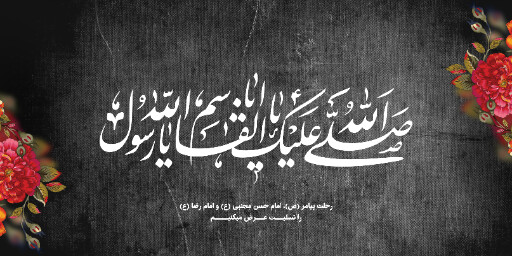 صلی الله علیک یا ابا القاسم یا رسول الله
رحلت پیامبر (ص)، امام حسن مجتبی (ع) و امام رضا (ع)
را تسلیت عرض میکنیم